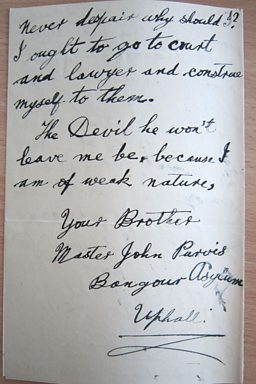 never despair why should I?
I ought to go to court
and lawyer and construe
myself to them.
The Devil he won't
leave me be, because I
am of weak nature,
Your Brother
Master John Parvis
Bongour Asylum
Uphall.